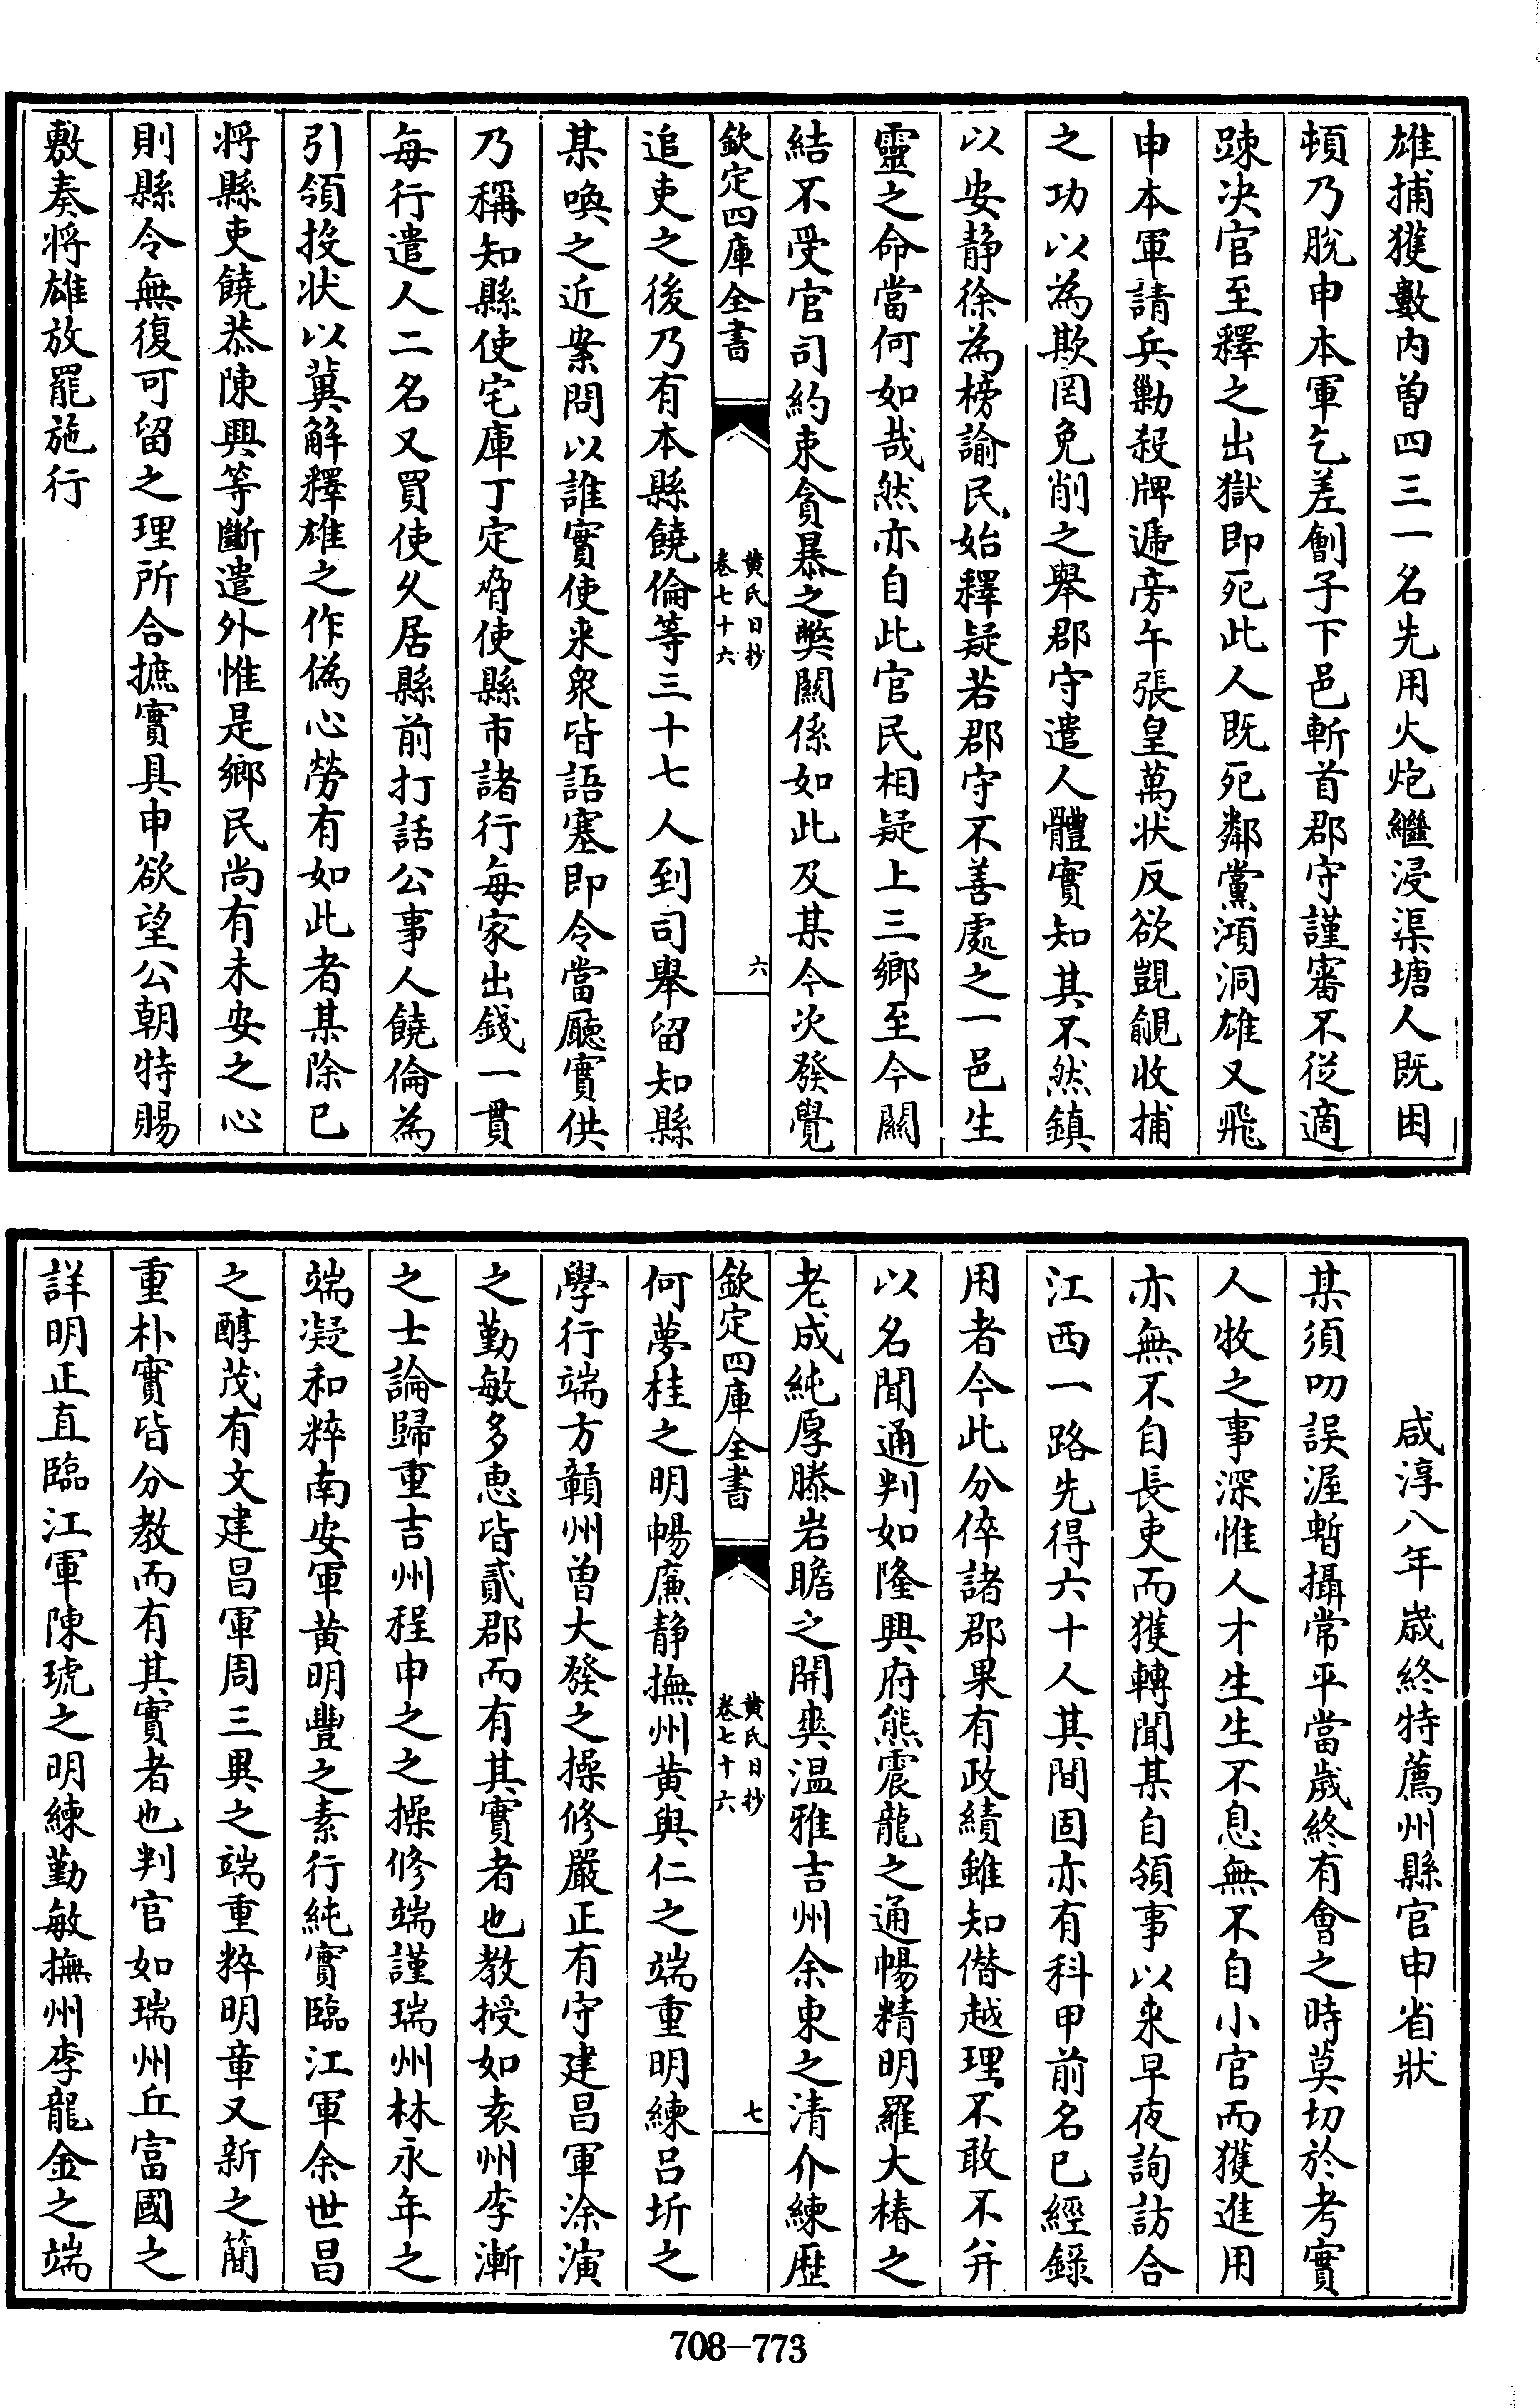 雄捕獲數内曽四三一名先用火炮繼浸渠塘人既困
頓乃脱申本軍乞差劊子下邑斬首郡守謹審不從適
踈决官至釋之出獄即死此人既死鄰黨澒洞雄又飛
申本軍請兵勦殺牌遞旁午張皇萬状反欲覬覦收捕
之功以為欺罔免削之舉郡守遣人體實知其不然鎮
以安静徐為榜諭民始釋疑若郡守不善處之一邑生
靈之命當何如哉然亦自此官民相疑上三鄉至今關
結不受官司約束貪暴之弊關係如此及某今次發覺
欽定四庫全書
黄氏日抄
卷七十六
六
追吏之後乃有本縣饒倫等三十七人到司舉留知縣
某喚之近案問以誰實使来衆皆語塞即令當廳實供
乃稱知縣使宅庫丁定脅使縣市諸行每家出錢一貫
每行遣人二名又買使久居縣前打話公事人饒倫為
引領投状以冀解釋雄之作偽心勞有如此者某除已
将縣吏饒恭陳興等斷遣外惟是鄉民尚有未安之心
則縣令無復可留之理所合摭實具申欲望公朝特賜
敷奏将雄放罷施行
咸淳八年歳終特薦州縣官申省狀
某須叨誤渥暫攝常平當歲終有會之時莫切於考實
人牧之事深惟人才生生不息無不自小官而獲進用
亦無不自長吏而獲轉聞某自領事以来早夜詢訪合
江西一路先得六十人其間固亦有科甲前名已經錄
用者今此分倅諸郡果有政績雖知僭越理不敢不并
以名聞通判如隆興府熊震龍之通暢精明羅大椿之
老成純厚滕岩瞻之開爽温雅吉州余東之清介練歴
欽定四庫全書
黄氏日抄
卷七十六
七
何夢桂之明暢廉静撫州黄與仁之端重明練吕圻之
學行端方贛州曽大發之操修嚴正有守建昌軍涂演
之勤敏多恵皆貳郡而有其實者也教授如袁州李漸
之士論歸重吉州程申之之操修端謹瑞州林永年之
端凝和粹南安軍黄明豐之素行純實臨江軍余世昌
之醇茂有文建昌軍周三異之端重粹明章又新之簡
重朴實皆分教而有其實者也判官如瑞州丘富國之
詳明正直臨江軍陳琥之明練勤敏撫州李龍金之端
708-773